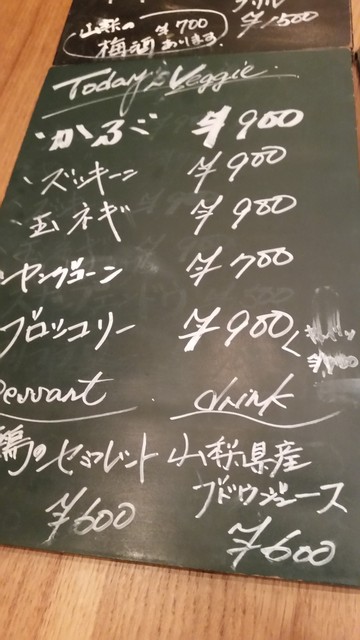 山梨の ¥700
梅酒 あります
¥1500
Today's Veggie
・かぶ ¥900
・ズッキーニ ¥900
・玉ネギ ¥980
・ヤングコーン ¥700
ブロッコリー ¥900
Dessert drink
鶏のセミフレット 山梨県産
ブドウジュース
¥600 ¥600